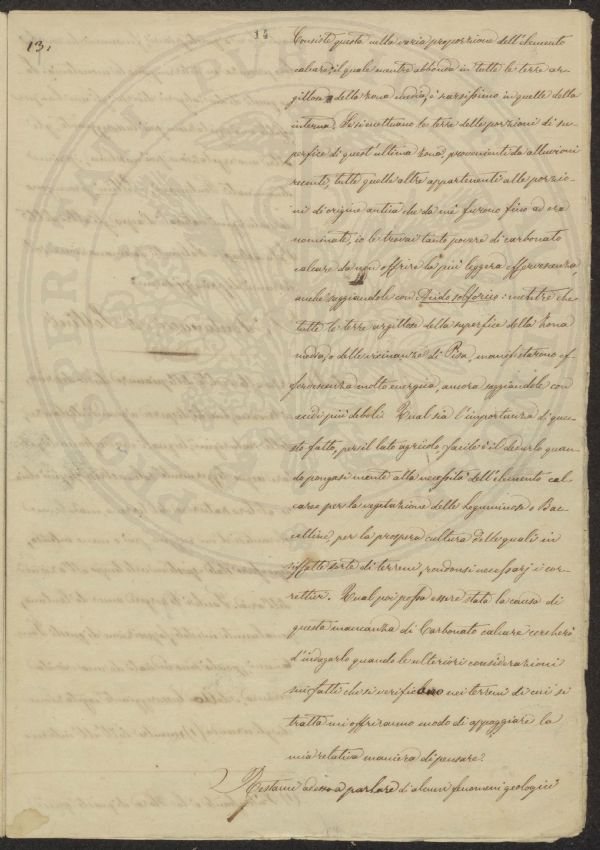 13.
14
Consiste questa nella varia proporzione dell'elemento
calcare; il quale mentre abbonda in tutte le terre ar-
gillose della zona media, è rarissimo in quelle della
interna. Se si eccettuano le terre delle porzioni di su-
perfice di quest'ultima zona, provenienti da alluvioni
recenti, tutte quelle altre appartenenti alle porzio-
ni di origine antica che da me furono fino ad ora
nominate, io le trovai tanto povere di carbonato
calcare da non offrire la più leggera effervescenza,
anche saggiandole con Acido solforico: mentre che
tutte le terre argillose della superfice della Zona
media, o delle vicinanze di Pisa, manifestarono ef-
fervescenza molto energica, ancora saggiandole con
acidi più deboli. Qual sia l'importanza di que-
sto fatto, per il lato agricolo, facile è il dedurlo quan-
do pongasi mente alla necessità dell'elemento cal-
care per la vegetazione delle Leguminose o Bac-
celline, per la prospera cultura delle quali in
siffatte sorte di terreni, rendonsi necessarj i cor-
rettivi. Qual poi possa essere stata la causa di
questa mancanza di Carbonato calcare cercherò
d'indagarlo quando le ulteriori considerazioni
sui fatti che si verificano nei terreni di cui si
tratta mi offriranno modo di appoggiare la
mia relativa maniera di pensare.
Restami adesso a parlare di alcuni fenomeni geologici